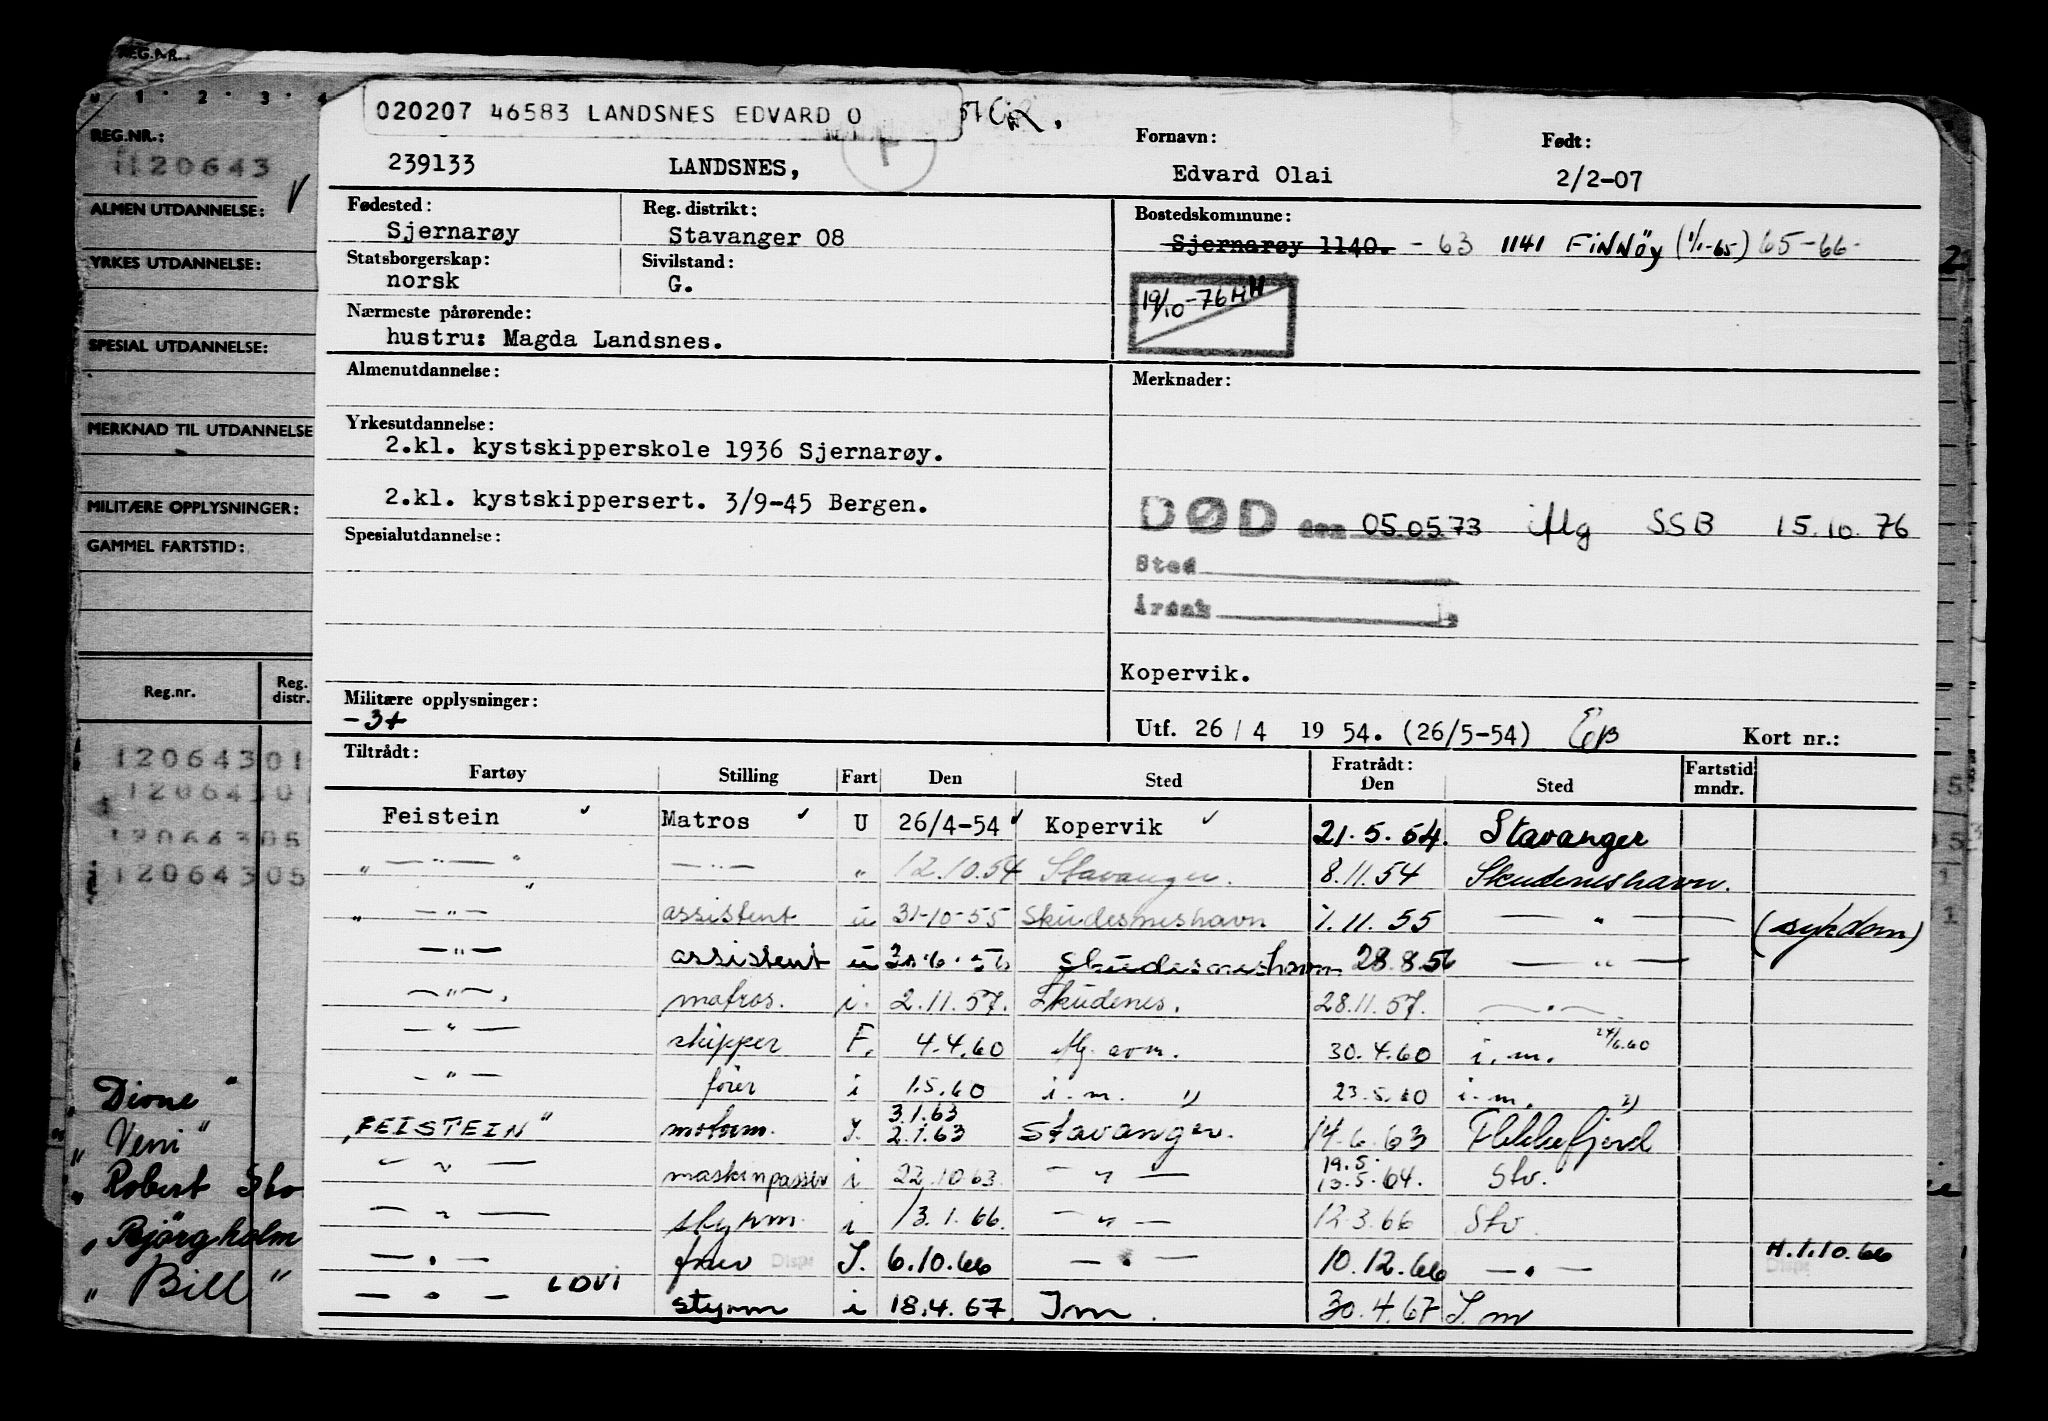 REG.NR.:
1 2 3 4
020207 46583 LANDSNES EDVARD O
REG.NR.:
1120643
239133 LANDSNES,
Fornavn: Født:
Edvard Olai 2/2-07
ALMEN UTDANNELSE:
Fødested: Reg. distrikt: Bostedskommune:
Sjernarøy Stavanger 08 Sjernarøy 1140. -63 1141 FiNNÖy (1/1-65) 65-66-
YRKES UTDANNELSE:
Statsborgerskap: Sivilstand:
norsk G.
19/10-76 HH
Nærmeste pårørende:
hustru: Magda Landsnes.
SPESIAL UTDANNELSE:
Almenutdannelse: Merknader:
MERKNAD TIL UTDANNELSE
Yrkesutdannelse:
2.kl. kystskipperskole 1936 Sjernarøy.
2.kl. kystskippersert. 3/9-45 Bergen.
MILITÆRE OPPLYSNINGER:
DØD den 05.05.73 iflg SSB 15.10.76
GAMMEL FARTSTID:
Spesialutdannelse:
Sted
Årsak
Kopervik.
Reg.nr. Reg. distr.
Militære opplysninger:
-3+
Utf. 26 / 4 19 54. (26/5-54) EB Kort nr.:
Tiltrådt: Fratrådt: Fartstid
Fartøy Stilling Fart Den Sted Den Sted mndr.
12064301
12064301
12064305
12064305
Feistein Matros U 26/4-54 Kopervik 21.5.54. Stavanger
" — " — " — " — " 12.10.54 Stavanger. 8.11.54 Skudeneshavn.
" — " — assistent u 31-10-55 Skudesneshavn 1.11.55 — " — (sykdom)
— " — assistent u 30.6.56 Skudesneshavn 28.8.56 — " —
— " — matros. i. 2.11.57. Skudenes. 28.11.57. — " —
— " — skipper F. 4.4.60 Mg. avm. 30.4.60 i.m. 24/6.60
— " — fører i 1.5.60 i.m. 23.5.60 i.m.
"Dione"
3.1.63
"FEISTEIN" motorm. I. 2.1.63 Stavanger. 14.6.63 Flekkefjord
"Veni"
19.5.
— " — maskinpasser i 22.10.63. — " — 13.5.64. Stv.
"Robert Sto
— " — styrm. i 13.1.66. — " — 12.3.66 Stv
"Bjørgholm
— " — fører Disp. I. 6.10.66 — " — 10.12.66 — " — H.1.10.66
Disp.
"Bill"
— " — LOVI styrm i 18.4.67 I m. 30.4.67 I. m